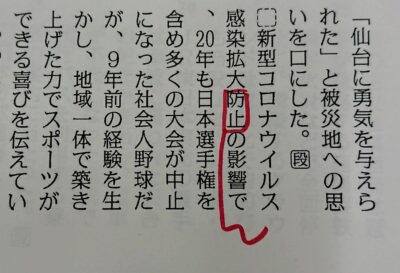 「仙台に勇気を与えら
れた」と被災地への思
いを口にした。段
新型コロナウイルス
感染拡大防止の影響で
、20年も日本選手権を
含め多くの大会が中止
になった社会人野球だ
が、9年前の経験を生
かし、地域一体で築き
上げた力でスポーツが
できる喜びを伝えてい